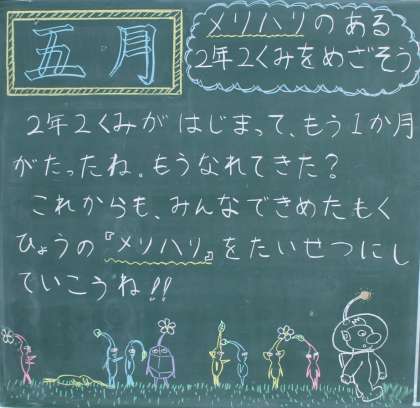 五月
メリハリのある
2年2くみをめざそう
2年2くみがはじまって、もう1か月
がたったね。もうなれてきた？
これからも、みんなできめたもく
ひょうの『メリハリ』をたいせつにし
ていこうね!!